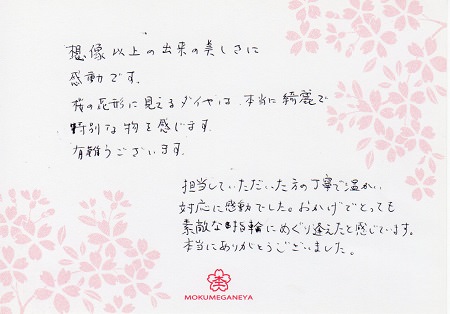 想像以上の出来の美しさに
感動です。
桜の花形に見えるダイヤは、本当に綺麗で
特別な物を感じます。
有難うございます。
担当していただいた方の丁寧で温かい
対応に感動でした。おかげでとっても
素敵な指輪にめぐり逢えたと感じています。
本当にありがとうございました。
MOKUMEGANEYA